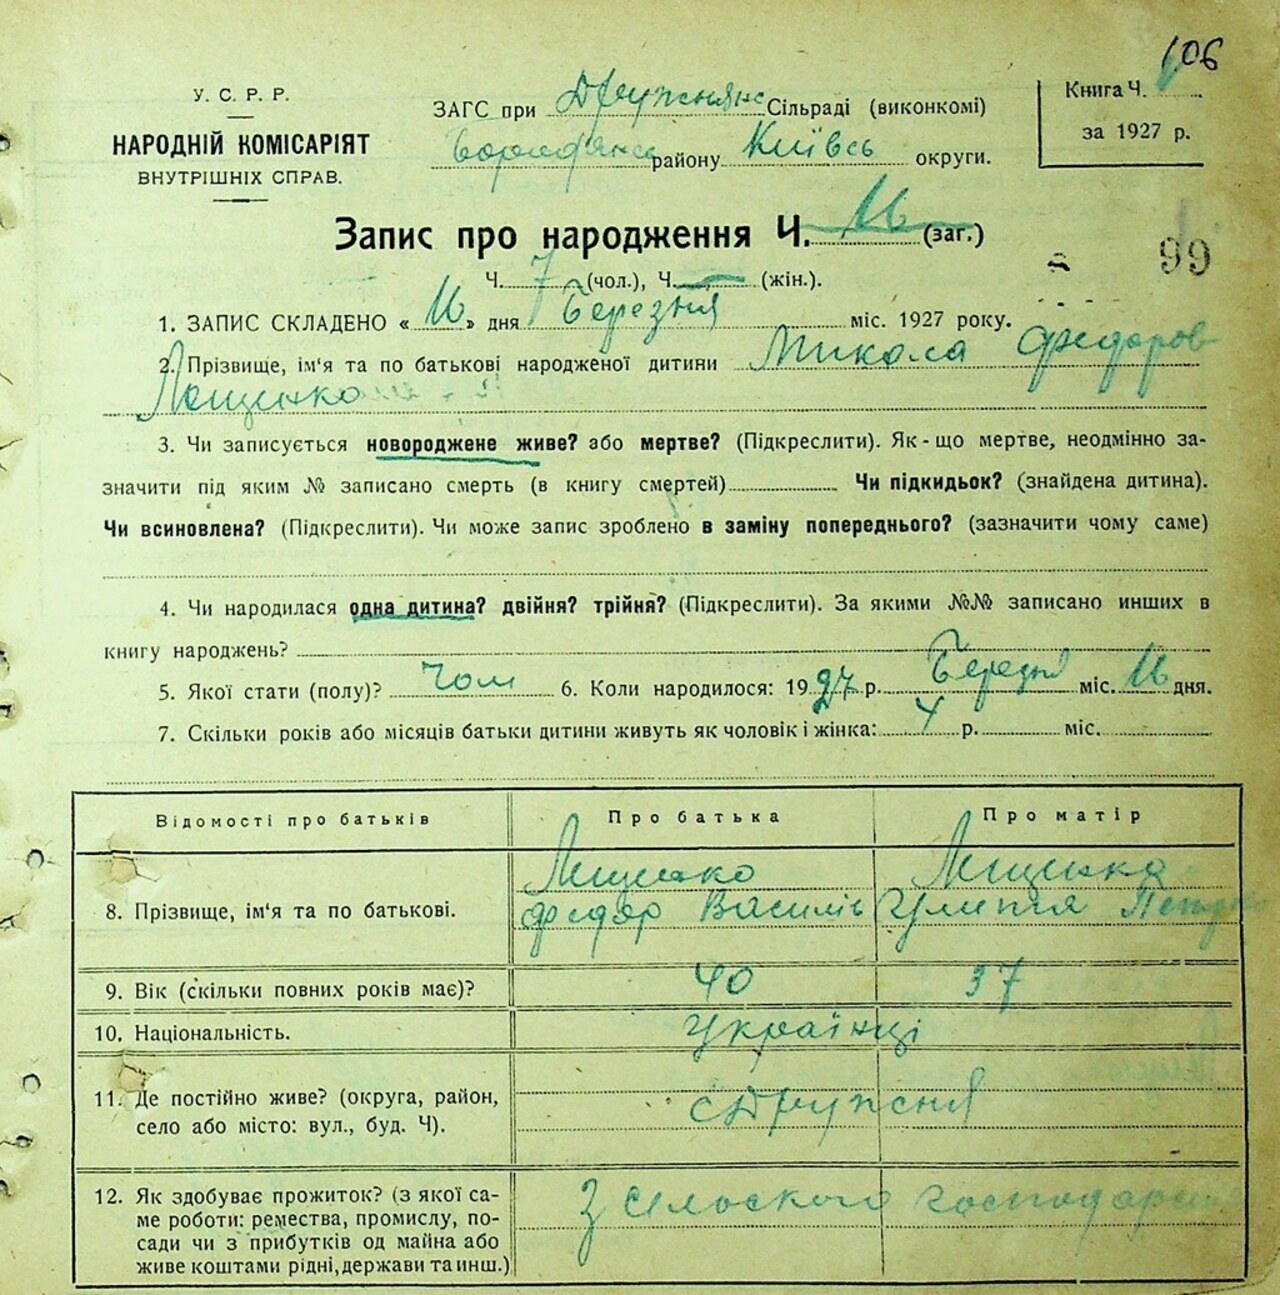 106
У. С. Р. Р.
НАРОДНІЙ КОМІСАРІЯТ
ВНУТРІШНІХ СПРАВ.
ЗАГС при Дружнянс Сільраді (виконкомі)
Бородянс району Київсь округи.
Книга Ч.
за 1927 р.
Запис про народження Ч. 16 (заг.)
99
Ч. 7 (чол.), Ч. — (жін.).
1. ЗАПИС СКЛАДЕНО « 16 » дня Березня міс. 1927 року.
2. Прізвище, ім'я та по батькові народженої дитини Микола Федоров
Лещенко
3. Чи записується новороджене живе? або мертве? (Підкреслити). Як-що мертве, неодмінно за-
значити під яким № записано смерть (в книгу смертей) Чи підкидьок? (знайдена дитина).
Чи всиновлена? (Підкреслити). Чи може запис зроблено в заміну попереднього? (зазначити чому саме)
4. Чи народилася одна дитина? двійня? трійня? (Підкреслити). За якими №№ записано инших в
книгу народжень?
5. Якої стати (полу)? Чол 6. Коли народилося: 1927 р. Березня міс. 16 дня.
7. Скільки років або місяців батьки дитини живуть як чоловік і жінка: 4 р. міс.
Відомості про батьків Про батька Про матір
8. Прізвище, ім'я та по батькові. Лещенко Федор Василів Лещенко Улита
9. Вік (скільки повних років має)? 40 37
10. Національність. Українці
11. Де постійно живе? (округа, район,
село або місто: вул., буд. Ч). с Дружня
12. Як здобуває прожиток? (з якої са-
ме роботи: ремества, промислу, по-
сади чи з прибутків од майна або
живе коштами рідні, держави та инш.) З сільского господарс